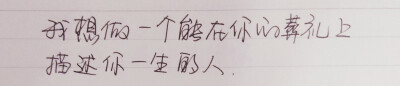 我想做一个能在你的葬礼上
描述你一生的人.